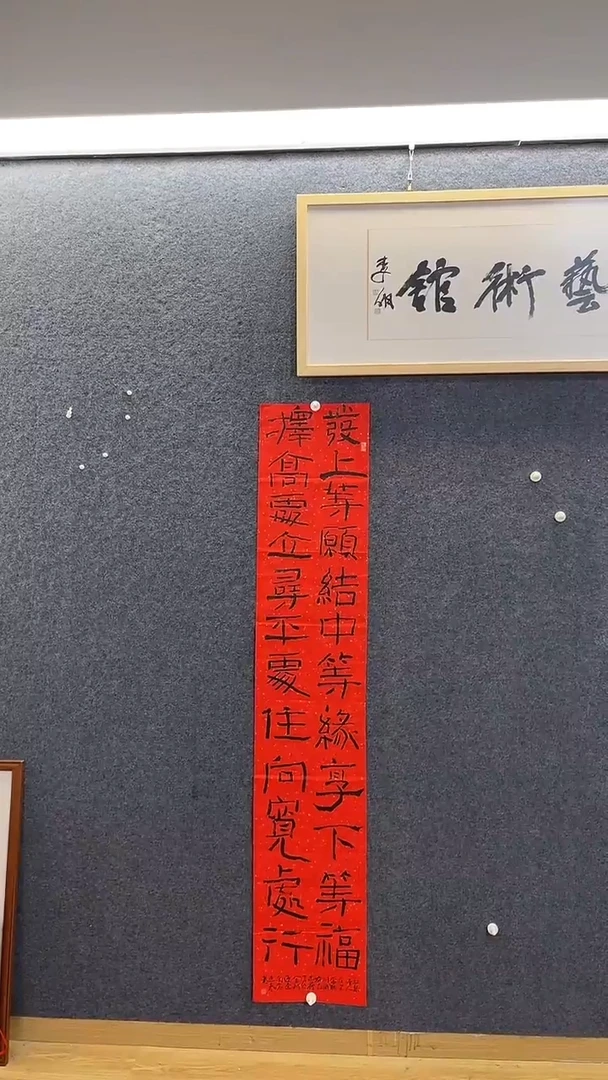 藝術館
發上等願結中等緣享下等福
擇高處立尋平處住向寬處行